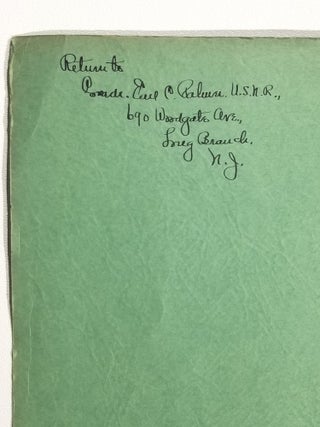 Return to
Comdr. Earl C. U.S.N.R.,
690 Woodgate Ave.,
Long Branch,
N.J.